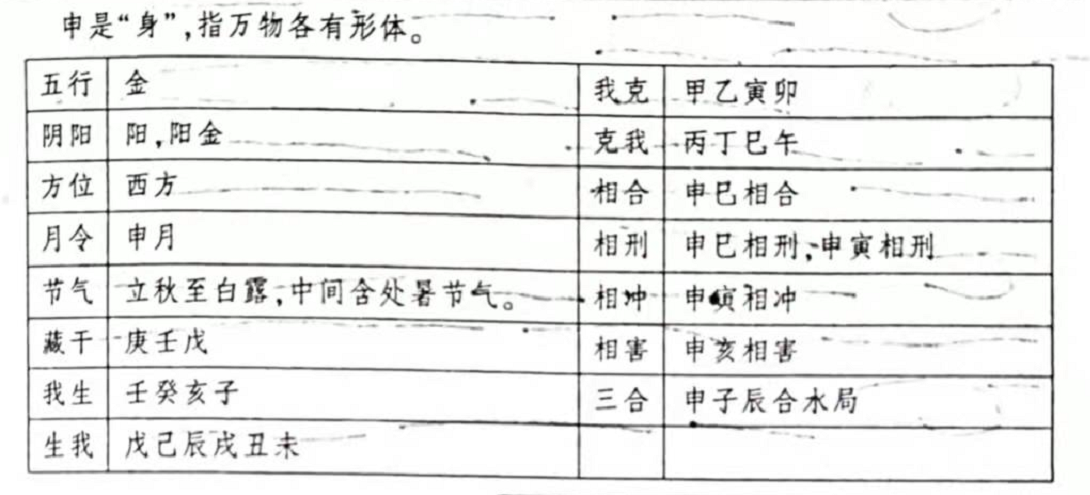 申是“身”,指万物各有形体。
五行 金 我克 甲乙寅卯
阴阳 阳,阳金 克我 丙丁巳午
方位 西方 相合 申巳相合
月令 申月 相刑 申巳相刑,申寅相刑
节气 立秋至白露,中间含处暑节气。 相冲 申寅相冲
藏干 庚壬戊 相害 申亥相害
我生 壬癸亥子 三合 申子辰合水局
生我 戊己辰戌丑未